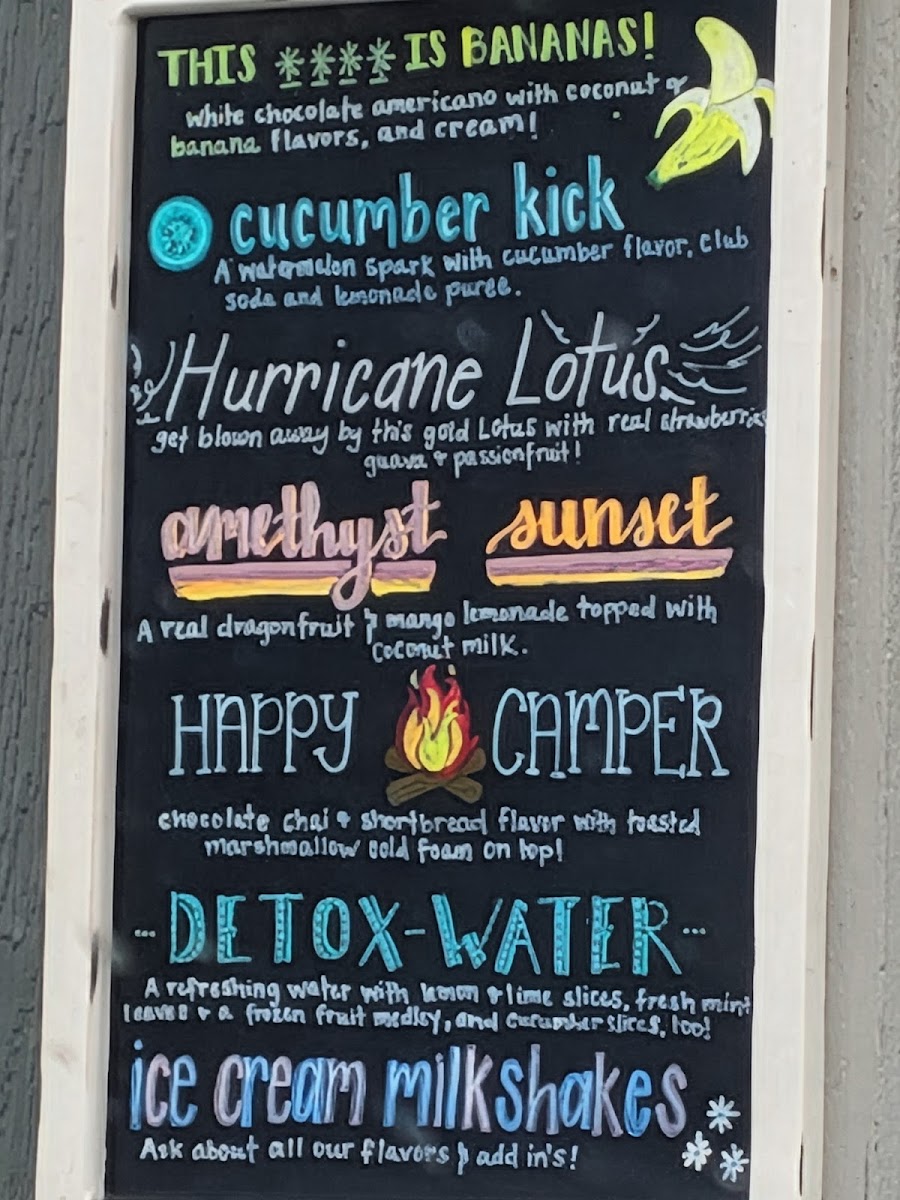 THIS **** IS BANANAS!
White chocolate americano with coconut &
banana flavors, and cream!
cucumber kick
A watermelon spark with cucumber flavor, club
soda and lemonade puree.
Hurricane Lotus
get blown away by this gold Lotus with real strawberries
guava & passionfruit!
amethyst sunset
A real dragonfruit & mango lemonade topped with
coconut milk.
HAPPY CAMPER
chocolate chai & shortbread flavor with toasted
marshmallow cold foam on top!
DETOX-WATER
A refreshing water with lemon & lime slices, fresh mint
leaves & a frozen fruit medley, and cucumber slices, too!
ice cream milkshakes
Ask about all our flavors & add in's!